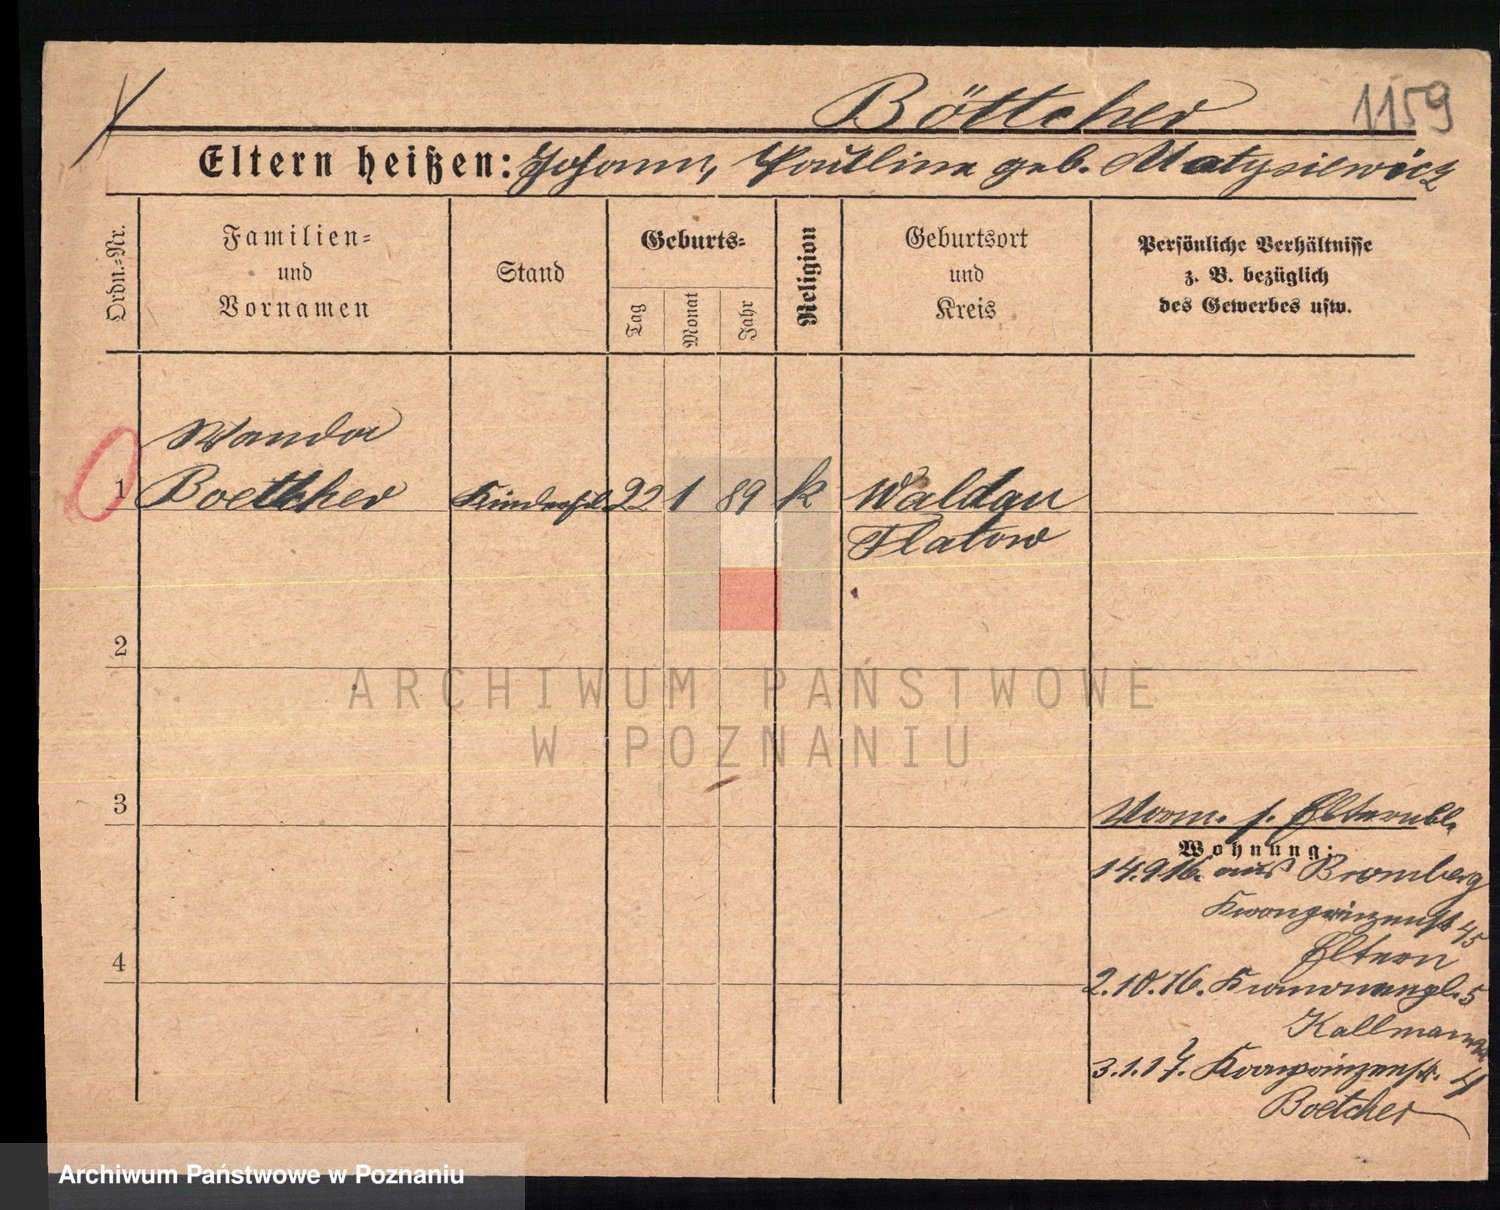 Böttcher 1159
Eltern heißen: Johann, Pauline geb. Matysiewicz
Ordn.-Nr.
Familien-
und
Vornamen
Stand
Geburts-
Tag
Monat
Jahr
Religion
Geburtsort
und
Kreis
Persönliche Verhältnisse
z. B. bezüglich
des Gewerbes usw.
Wanda
1 Boettcher 22 1 89 k Waldau
Flatow
2
3
Vorm. s. Elternbl.
Wohnung:
14.9.16. aus Bromberg
Kronprinzenst 45
Eltern
4
2.10.16. 5
Kallmann
3.1.17. Kronprinzenst.
Boetcher
ARCHIWUM PAŃSTWOWE
W POZNANIU
Archiwum Państwowe w Poznaniu